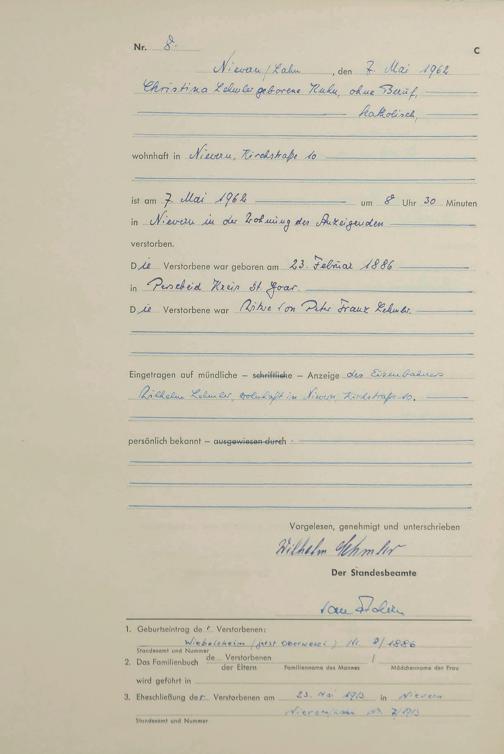 Nr. 8. C
Nievern/Lahn, den 7. Mai 1962
Christina Lehmler geborene Kuhn, ohne Beruf,
katholisch,
wohnhaft in Nievern, Kirchstraße 10
ist am 7. Mai 1962 um 8 Uhr 30 Minuten
in Nievern in der Wohnung des Anzeigenden
verstorben.
Die Verstorbene war geboren am 23. Februar 1886
in Perscheid Kreis St. Goar.
Die Verstorbene war Witwe von Peter Franz Lehmler.
Eingetragen auf mündliche – schriftliche – Anzeige des Eisenbahners
Wilhelm Lehmler, wohnhaft in Nievern Kirchstraße 10.
persönlich bekannt – ausgewiesen durch
Vorgelesen, genehmigt und unterschrieben
Wilhelm Lehmler
Der Standesbeamte
1. Geburtseintrag de r Verstorbenen:
Wiebelsheim (jetzt Oberwesel) Nr. /1886
Standesamt und Nummer
2. Das Familienbuch de Verstorbenen der Eltern /
Familienname des Mannes Mädchenname der Frau
wird geführt in
3. Eheschließung der Verstorbenen am 23. Mai 1913 in Nievern
Nr. 7/1913
Standesamt und Nummer